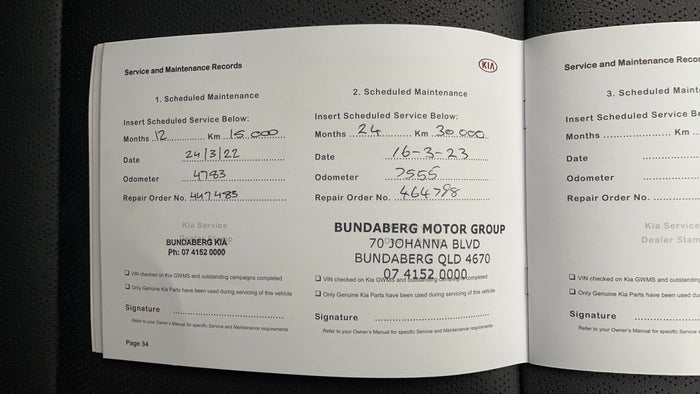 Service and Maintenance Records
KIA
1. Scheduled Maintenance
Insert Scheduled Service Below:
Months 12 Km 15 000
Date 24/3/22
Odometer 4783
Repair Order No. 447485
Kia Service
Dealer Stamp
BUNDABERG KIA
Ph: 07 4152 0000
❑ VIN checked on Kia GWMS and outstanding campaigns completed
❑ Only Genuine Kia Parts have been used during servicing of this vehicle
Signature
Refer to your Owner's Manual for specific Service and Maintenance requirements
Page 34
2. Scheduled Maintenance
Insert Scheduled Service Below:
Months 24 Km 30 000
Date 16-3-23
Odometer 7555
Repair Order No. 464798
BUNDABERG MOTOR GROUP
70 JOHANNA BLVD
BUNDABERG QLD 4670
07 4152 0000
❑ VIN checked on Kia GWMS and outstanding campaigns completed
❑ Only Genuine Kia Parts have been used during servicing of this vehicle
Signature
Refer to your Owner's Manual for specific Service and Maintenance requirements
Service and Maintenance Recor
3. Scheduled Maint
Insert Scheduled Service Be
Months Km
Date
Odometer
Repair Order No.
Kia Service
Dealer Stam
❑ VIN checked on Kia GWMS and outstanding
❑ Only Genuine Kia Parts have been used
Signature
Refer to your Owner's Manual for specific Service